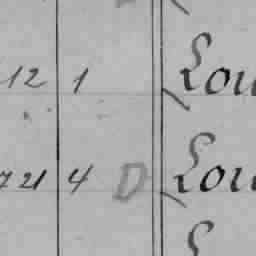 12 1 Lou
721 4 D Lou